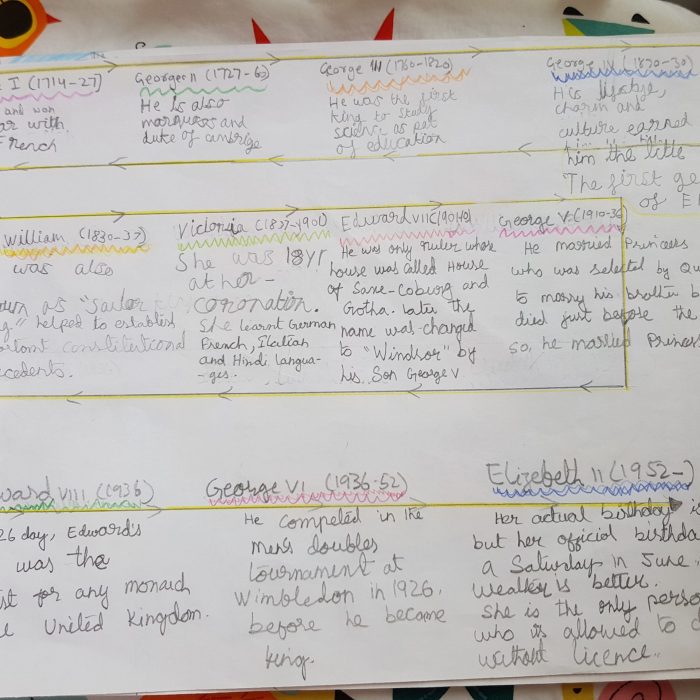 I (1714-27)
and won
ar with
French
George II (1727-60)
He is also
marquess and
duke of cambrige
George III (1760-1820)
He was the first
king to study
science as part
of education
George IV (1820-30)
His lifstyle,
charm and
culture earned
him the title
The first ge
of E
William (1830-37)
was also
own as "Sailor
g" helped to establish
ortant constitutional
ecedents.
Victoria (1837-1901)
She was 18yr
at her-
coronation.
She learnt German
French, Italian
and Hindi langua-
-ges.
Edward VII (1901-10)
He was only ruler whose
house was called House
of Saxe-Coburg and
Gotha. Later the
name was changed
to "Windsor" by
his Son George V
George V (1910-36)
He married Princess
who was selected by Qu
to marry his brother b
died just before the
so, he married Princess
ward VIII (1936)
26 day, Edward's
was the
st for any monarch
e United Kingdom.
George VI (1936-52)
He competed in the
men's doubles
tournament at
Wimbledon in 1926,
before he became
king.
Elizebeth II (1952-)
Her actual birthday is
but her official birthda
a Saturday in June.
weather is better.
She is the only perso
who is allowed to d
without licence.